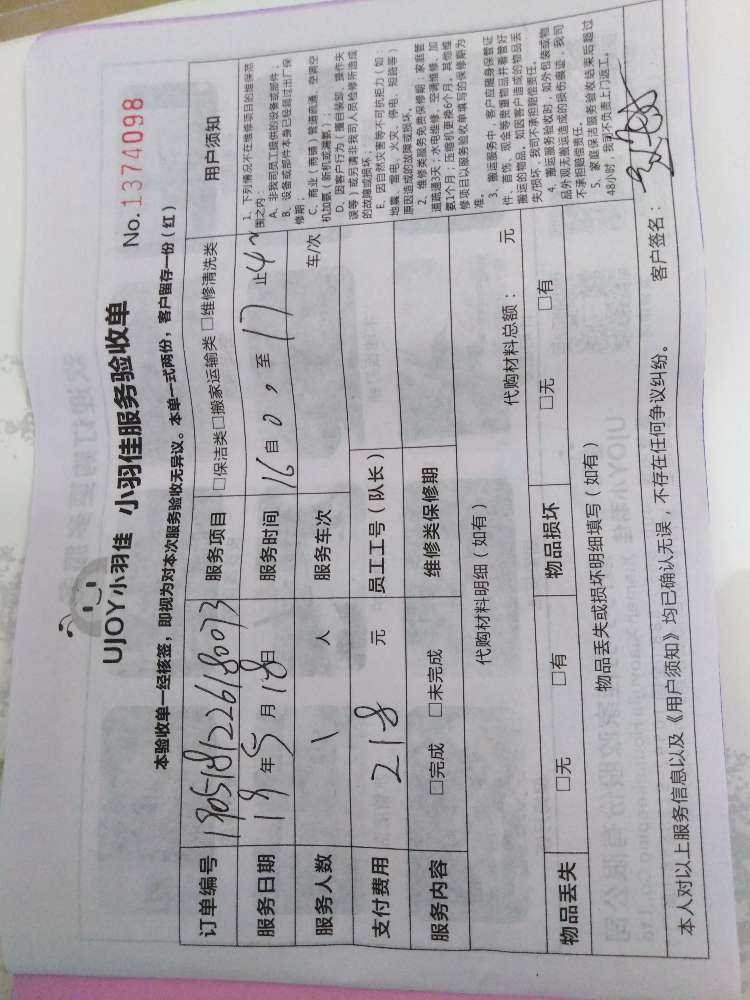 UJOY小羽佳 小羽佳服务验收单
No.1374098
本验收单一经核签，即视为对本次服务验收无异议。本单一式两份，客户留存一份（红）
订单编号 1905181226180073 服务项目 □保洁类□搬家运输类 □维修清洗类
服务日期 19年5月18日 服务时间 16自0，至17止
服务人数 1 人 服务车次 车/次
支付费用 218 元 员工工号（队长）
服务内容 □完成 □未完成 维修类保修期
代购材料明细（如有） 代购材料总额： 元
物品丢失 □无 □有 物品损坏 □无 □有
物品丢失或损坏明细填写（如有）
用户须知
1. 下列情况不在维修项目的维保范
围之内：
A. 非我司员工提供的设备或部件；
B. 设备或部件本身已经超过出厂保
修期；
C. 商业（两铺）管道疏通、空调空
机加氨（新机或漏氨）；
D. 因客户行为（擅自装卸、操作失
误等）或另请非我司人员检修所造成
的故障或损坏；
E. 因自然灾害等不可抗拒力（如：
地震、雷电、火灾、停电、短路等）
原因造成的故障或损坏。
2. 维修类服务免费保修期：家庭管
道疏通3天；水电维修、空调维修、加
氨1个月；压缩机更换6个月。其他维
修项目以服务验收单填写的保修期为
准。
3. 搬运服务中，客户应随身保管证
件、首饰、现金等贵重物品并看管好
搬运的物品，如因客户造成的物品丢
失/损坏，我司不承担赔偿责任。
4. 搬运服务验收时，如外包装或物
品外观无搬运造成的损伤痕迹，我司
不承担赔偿责任。
5. 家庭保洁服务验收结束后超过
48小时，我司不负责上门返工。
本人对以上服务信息以及《用户须知》均已确认无误，不存在任何争议纠纷。 客户签名：